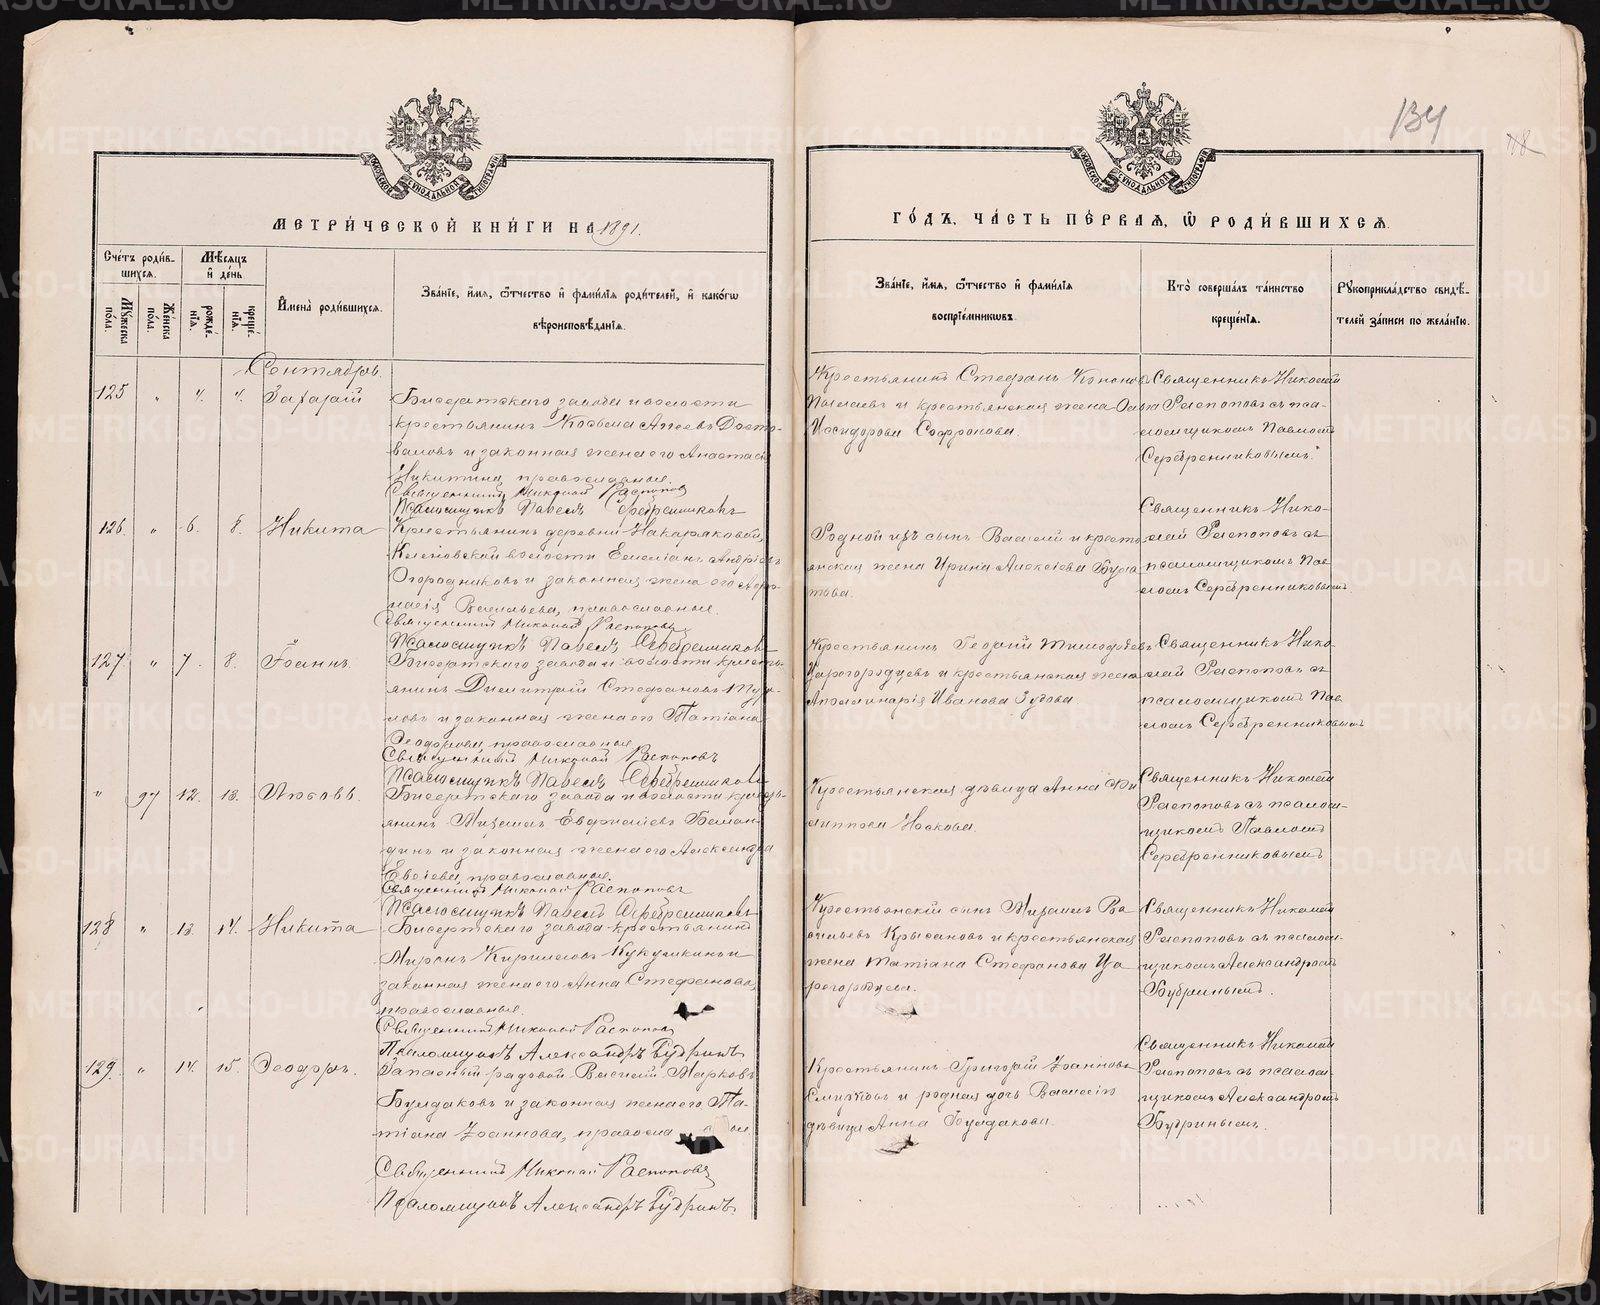 134
118
МЕТРИ́ЧЕСКОЙ КНИ́ГИ НА 1891.
ГО́ДЪ, ЧА́СТЬ ПЕ́РВАЯ, Ѡ РОДИ́ВШИХСЯ.
МОСКОВСКОЙ СѴНОДАЛЬНОЙ ТИПОГРАФІИ
МОСКОВСКОЙ СѴНОДАЛЬНОЙ ТИПОГРАФІИ
Сче́тъ роди́в-
шихся.
Мѣ́сяцъ
и҆ де́нь.
Мꙋ́жеска по́ла.
Же́нска по́ла.
рожде́-нїѧ.
креще́-нїѧ.
И҆мена̀ роди́вшихся.
Зва́нїе, и҆́мѧ, ѻ҆́тчество и҆ фами́лїѧ роди́телей, и҆ како́гѡ
вѣроисповѣ́данїѧ.
Зва́нїе, и҆́мѧ, ѻ҆́тчество и҆ фами́лїѧ
воспрїе́мниковъ.
Кто̀ соверша́лъ та́инство
креще́нїѧ.
Рꙋкоприкла́дство свидѣ́-
телей за́писи по жела́нїю.
Сентябрь.
125 " 4. 4. Захарій
Бисертскаго завода и волости
крестьянинъ Косьма Агеевъ Досто-
валовъ и законная жена его Анастасія
Никитина, православные.
Священникъ Николай Распоповъ
Псаломщикъ Павелъ Серебренниковъ
Крестьянинъ Стефанъ Кононовъ
и крестьянская жена
Исидорова Софронова.
Священникъ Николай
Распоповъ съ пса-
ломщикомъ Павломъ
Серебренниковымъ.
126. " 6. 8. Никита
Крестьянинъ деревни Накаряковой,
Кленовской волости Емелианъ Андреевъ
Огородниковъ и законная жена его Афа-
насія Васильева, православные.
Священникъ Николай Распоповъ
Псаломщикъ Павелъ Серебренниковъ
Родной ихъ сынъ Василій и кресть-
янская жена Ирина Алексіева Була-
това.
Священникъ Нико-
лай Распоповъ съ
псаломщикомъ Пав-
ломъ Серебренниковымъ
127 " 7. 8. Іоаннъ.
Бисертскаго завода и волости кресть-
янинъ Димитрій Стефановъ
и законная жена его Татіана
Ѳеодорова, православные
Священникъ Николай Распоповъ
Псаломщикъ Павелъ Серебренниковъ
Крестьянинъ Георгій Тимофеевъ
Царегородцевъ и крестьянская жена
Аполлинарія Иванова Зудова.
Священникъ Нико-
лай Распоповъ съ
псаломщикомъ Пав-
ломъ Серебренниковымъ
" 97 12. 13. Любовь.
Бисертскаго завода и волости кресть-
янинъ Михаилъ Евфиміевъ Балан-
динъ и законная жена его Александра
православные.
Священникъ Николай Распоповъ
Псаломщикъ Павелъ Серебренниковъ
Крестьянская дѣвица Анна Фи-
липпова Носкова.
Священникъ Николай
Распоповъ съ псалом-
щикомъ Павломъ
Серебренниковымъ
128 " 13. 14. Никита
Бисертскаго завода крестьянинъ
Миронъ Кириловъ Кукушкинъ и
законная жена его Анна Стефанова,
православные.
Священникъ Николай Распоповъ
Псаломщикъ Александръ Бубринъ
Крестьянскій сынъ Михаилъ Ва-
сильевъ Крысановъ и крестьянская
жена Татіана Стефанова Ца-
регородцева.
Священникъ Николай
Распоповъ съ псалом-
щикомъ Александромъ
Бубринымъ.
129. " 14. 15. Ѳеодоръ.
Запасный рядовой Василій Марковъ
Булдаковъ и законная жена его Та-
тіана Іоаннова, правосла ные.
Священникъ Николай Распоповъ
Псаломщикъ Александръ Бубринъ.
Крестьянинъ Григорій Іоанновъ
и родная дочь Василія
дѣвица Анна Булдакова.
Священникъ Николай
Распоповъ съ псалом-
щикомъ Александромъ
Бубринымъ.
METRIKI.GASO-URAL.RU